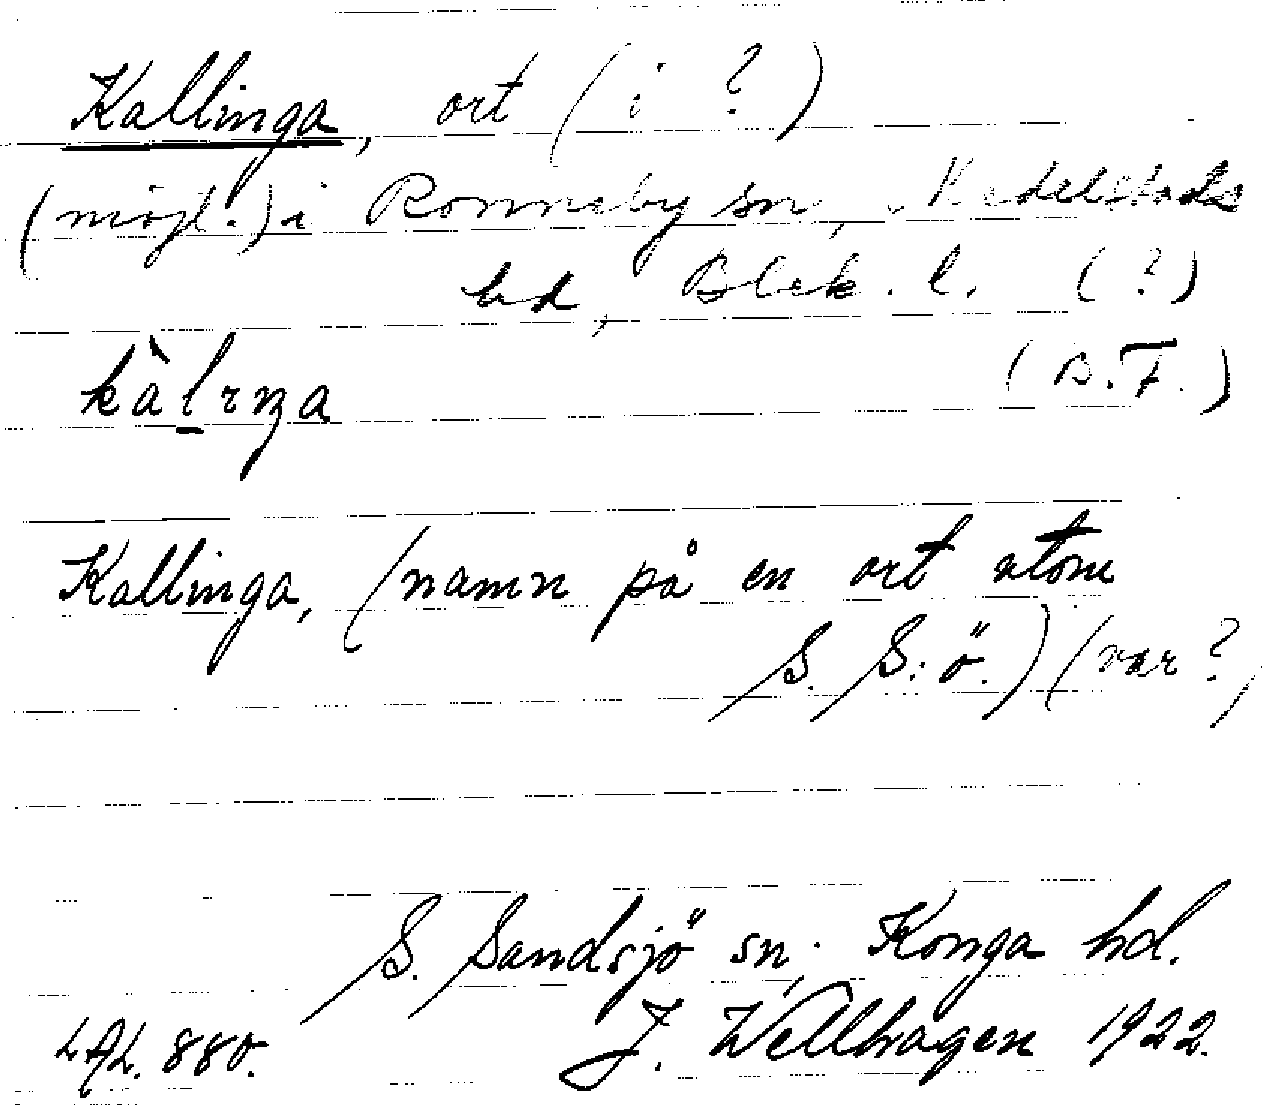 Kallinga, ort (i ?)
(möjl.) i Ronneby sn, Medelstads
hd, Blek. l. (?)
(B.F.)
kàlɪŋa
Kallinga, (namn på en ort utom
S. S:ö.) (var?)
S. Sandsjö sn, Konga hd.
LAL. 880. J. Wellhagen 1922.